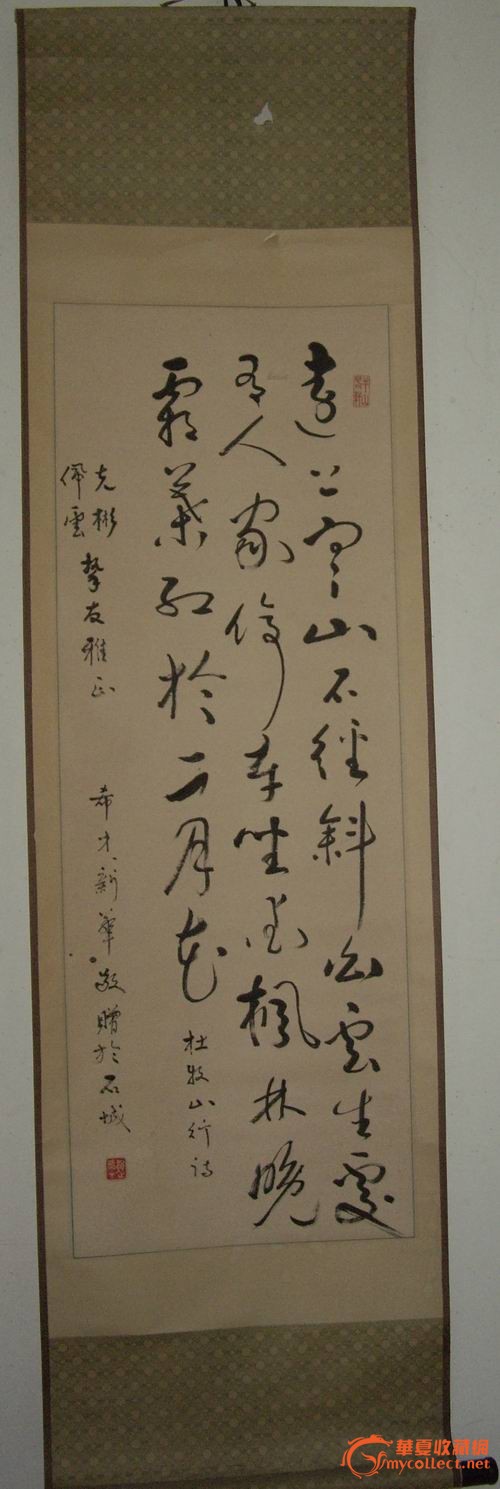 遠上寒山石徑斜白雲生處
有人家停車坐愛楓林晚
霜葉紅於二月花
杜牧山行詩
克彬
佩雲
摯友雅正
希才新華敬贈於石城
華夏收藏網
mycollect.net